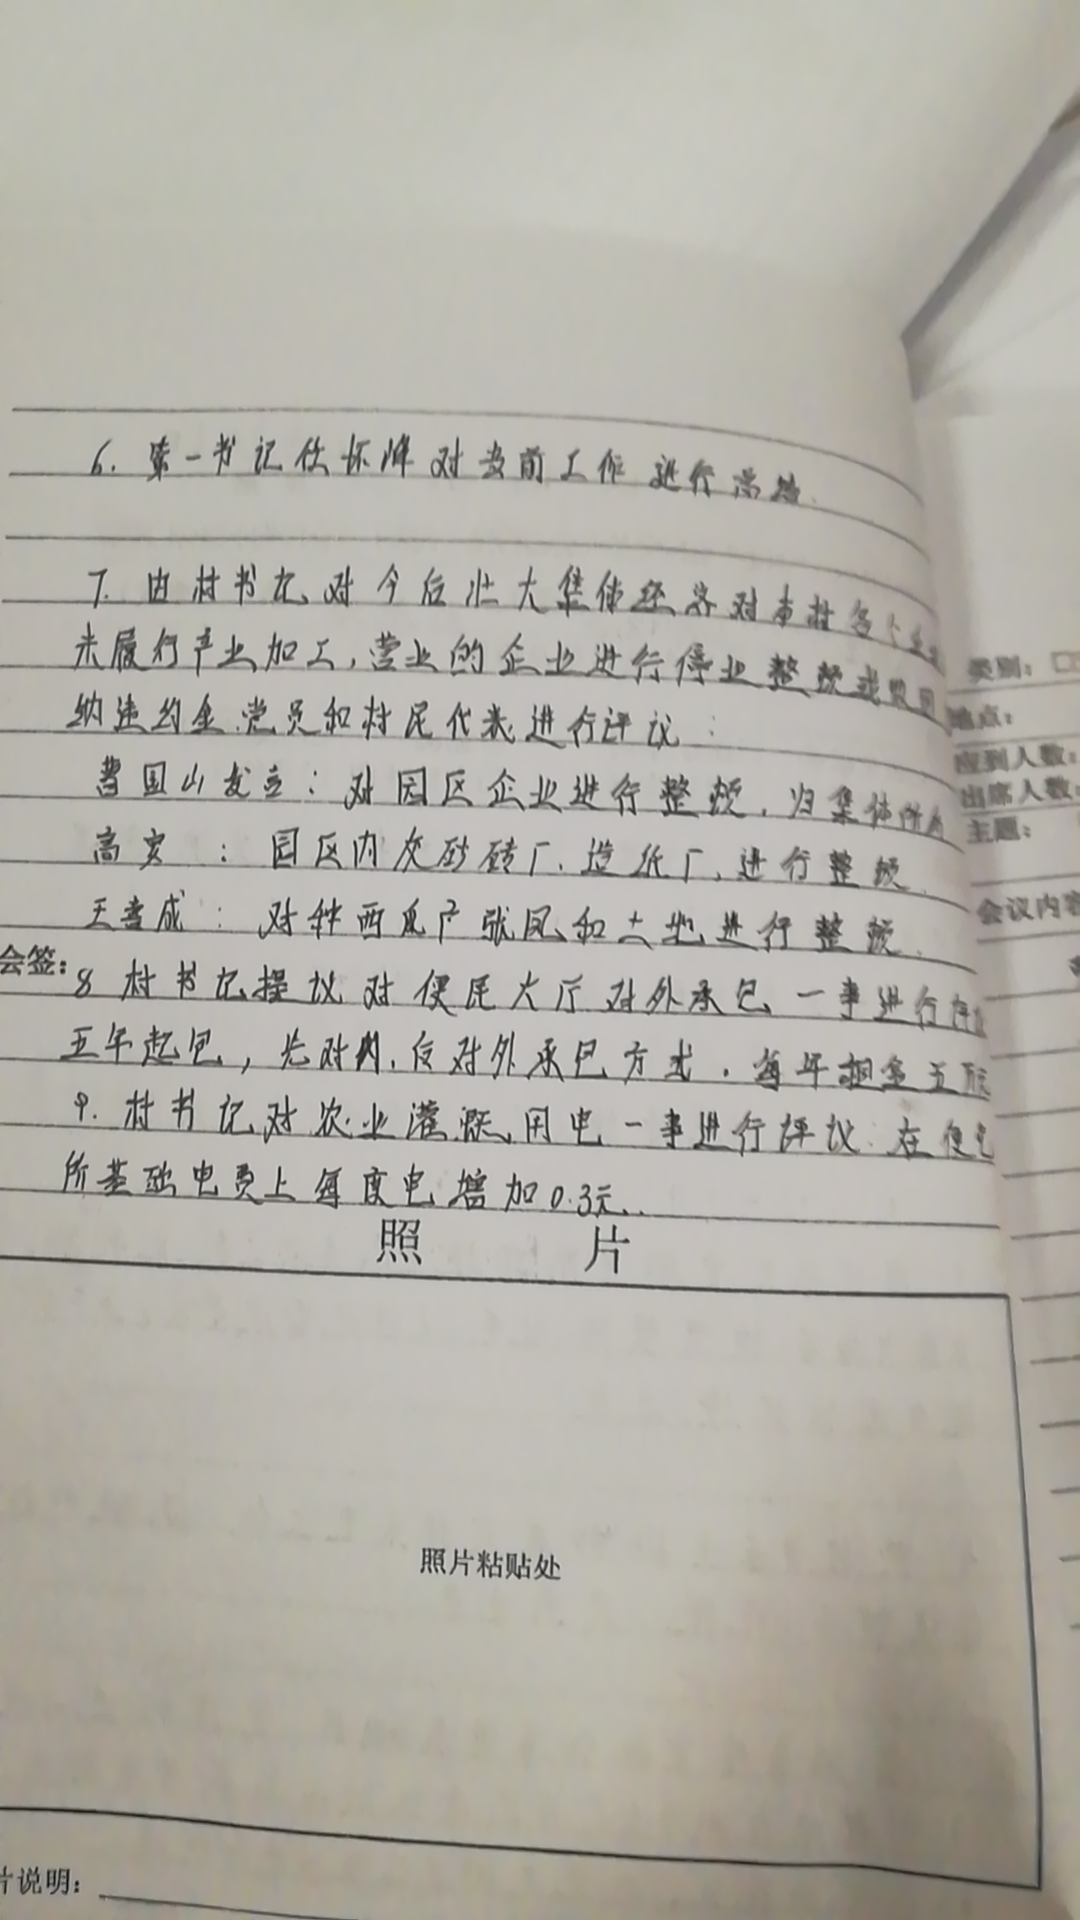 6. 第一书记任怀峰对当前工作进行总结.
7. 由村书记对今后壮大集体经济对本村各个企业
未履行产业加工,营业的企业进行停业整顿或收回
纳违约金.党员和村民代表进行评议:
曹国山发言:对园区企业进行整顿.归集体所有
高实:园区内灰砂砖厂.造纸厂,进行整顿.
王喜成:对种西瓜户张凤和土地进行整顿.
会签:
8 村书记提议对便民大厅对外承包一事进行评议
五年起包,先对内.后对外承包方式.每年租金五万元
9. 村书记对农业灌溉用电一事进行评议.在
所基础电费上每度电增加0.3元.
照 片
照片粘贴处
片说明:
类别:
地点:
应到人数:
出席人数:
主题:
会议内容